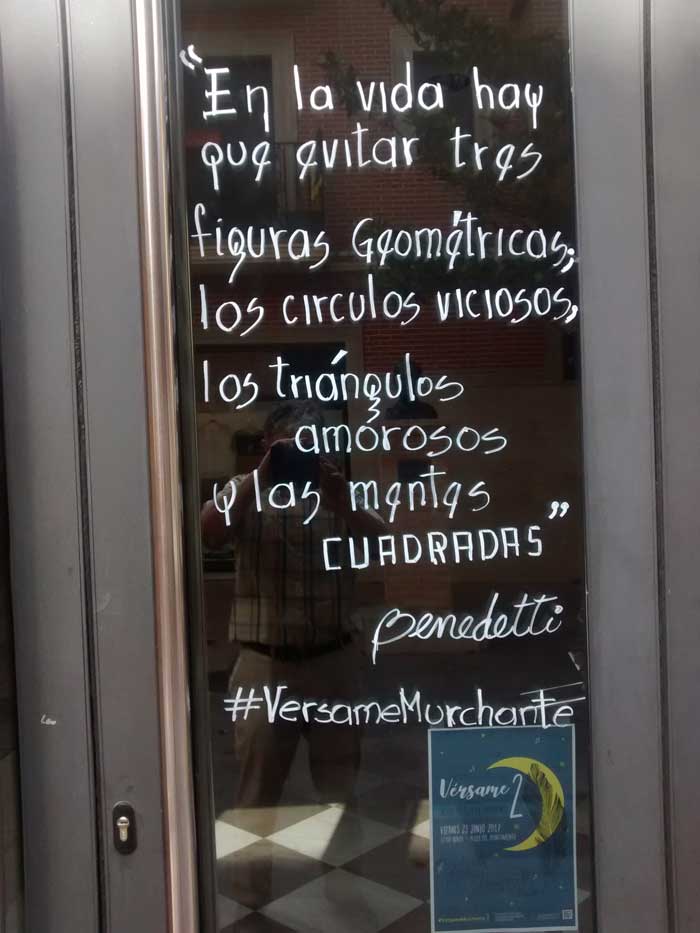 "En la vida hay
que evitar tres
figuras Geométricas;
los circulos viciosos,
los triángulos
amorosos
y las mentes
CUADRADAS"
Benedetti
#VersameMurchante
Vérsame
2
VIERNES 23 JUNIO 2017